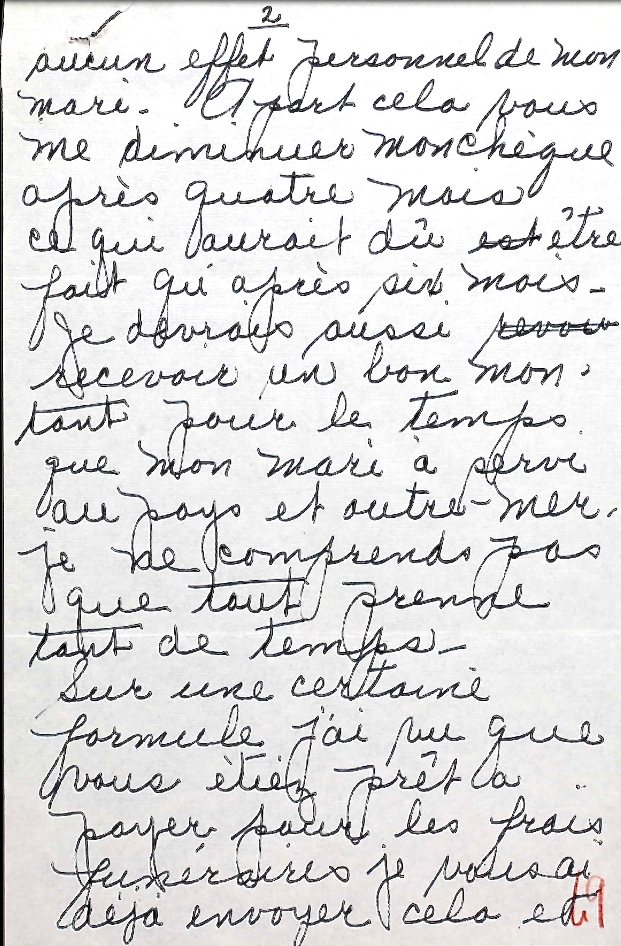 2
aucun effet personnel de mon
mari. A part cela vous
me diminuer mon chèque
après quatre mois
ce qui aurait dû est être
fait qu'après six mois -
Je devrais aussi revoir
recevoir un bon mon-
tant pour le temps
que mon mari à servi
au pays et outre-mer.
je ne comprends pas
que tout prenne
tant de temps -
Sur une certaine
formule j'ai vu que
vous étiez prêt a
payer pour les frais
funéraires je vous ai
déjà envoyer cela et
49